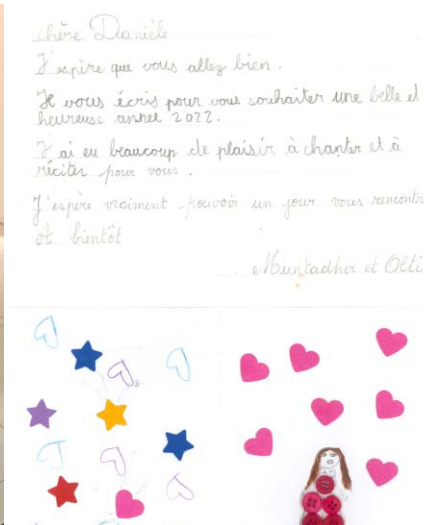 chère Danièle
J'espère que vous allez bien.
Je vous écris pour vous souhaiter une belle et
heureuse année 2022.
J'ai eu beaucoup de plaisir à chanter et à
réciter pour vous.
J'espère vraiment pouvoir un jour vous rencontr
A bientôt
Muntadher et Olti